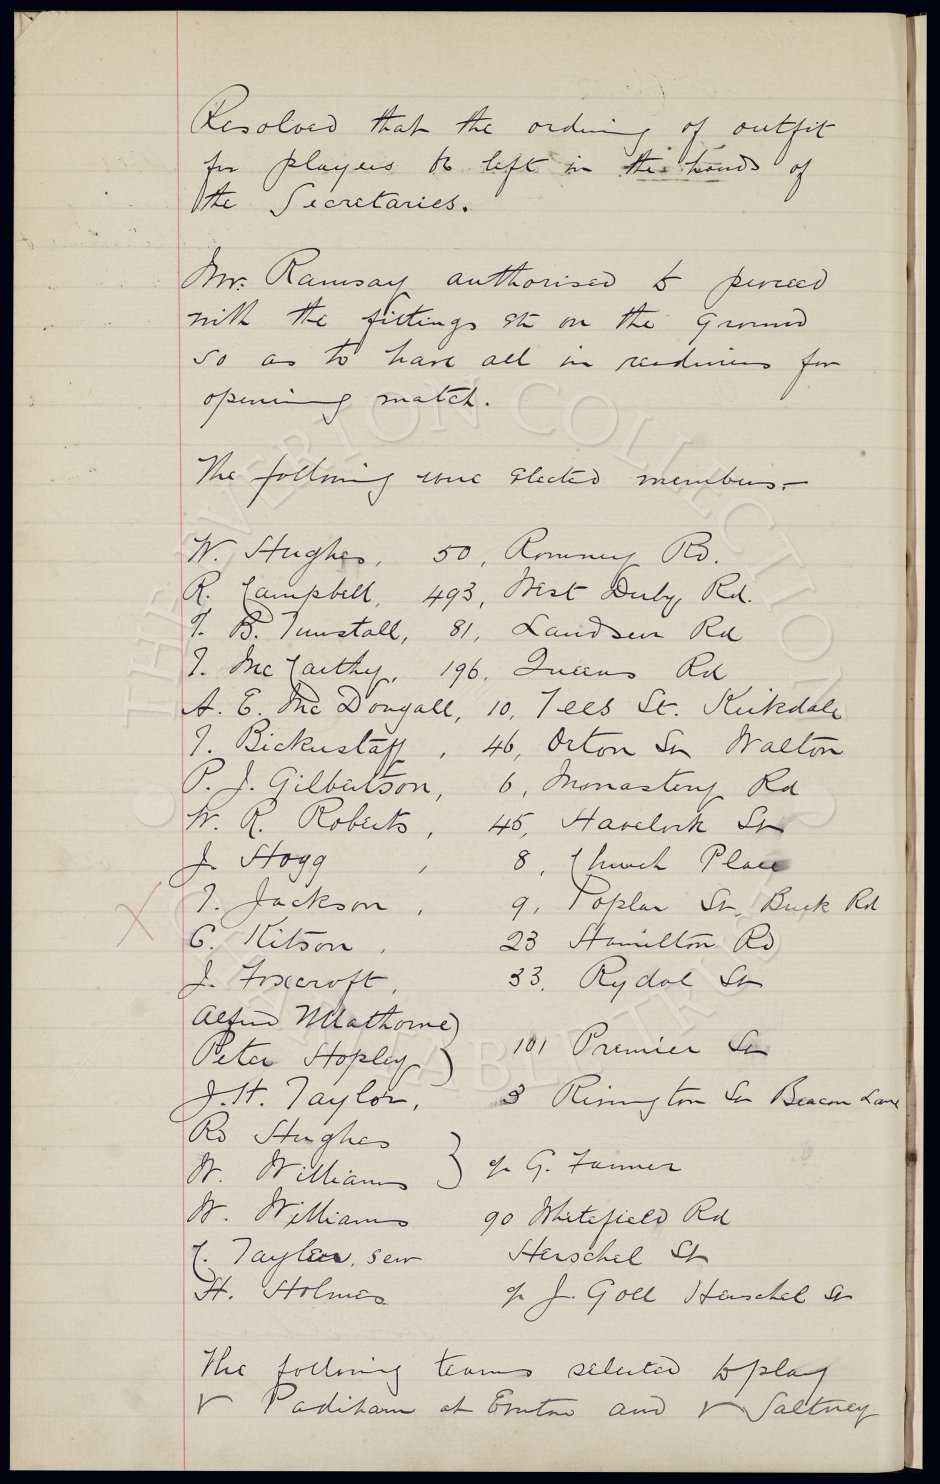 Resolved that the ordering of outfit
for players be left in the hands of
the Secretaries.
Mr. Ramsay authorised to proceed
with the fittings etc on the ground
so as to have all in readiness for
opening match.
The following were elected members.—
W. Hughes, 50, Romney Rd.
R. Campbell, 493, West Derby Rd.
T. B. Tunstall, 81, Landseer Rd
T. McCarthy, 196, Queens Rd
A. E. McDougall, 10, Tees St. Kirkdale
T. Bickerstaff, 46, Orton St Walton
P. J. Gilbertson, 6, Monastery Rd
W. R. Roberts, 45, Havelock St
J. Hogg, 8, Church Place
T. Jackson, 9, Poplar St, Buck Rd
C. Kitson, 23 Hamilton Rd
J. Foxcroft, 33, Rydal St
Alfred
Peter Hopley } 101 Premier St
J. H. Taylor, 3 Rimington St Beacon Lane
Rd Hughes
W. Williams } G. Farmer
W. Williams 90 Whitefield Rd
C. Taylor, senr Herschel St
H. Holmes J. Goll Herschel St
The following teams selected to play
v Padiham at Everton and v Saltney
THE EVERTON COLLECTION
CHARITABLE TRUST